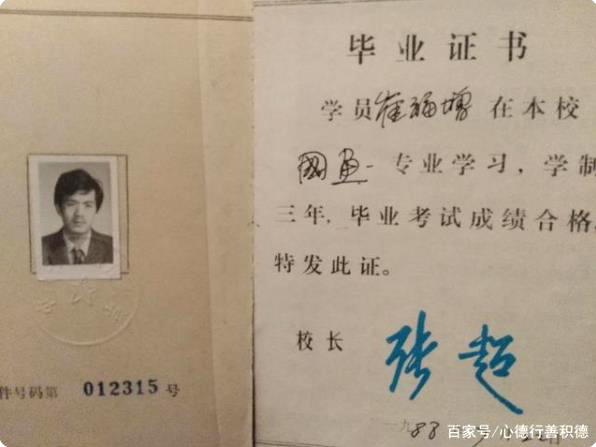 件号码第 012315 号
毕业证书
学员崔福增在本校
國画 专业学习，学制
三年，毕业考试成绩合格，
特发此证。
校长 张超
一九88
百家号/心德行善积德